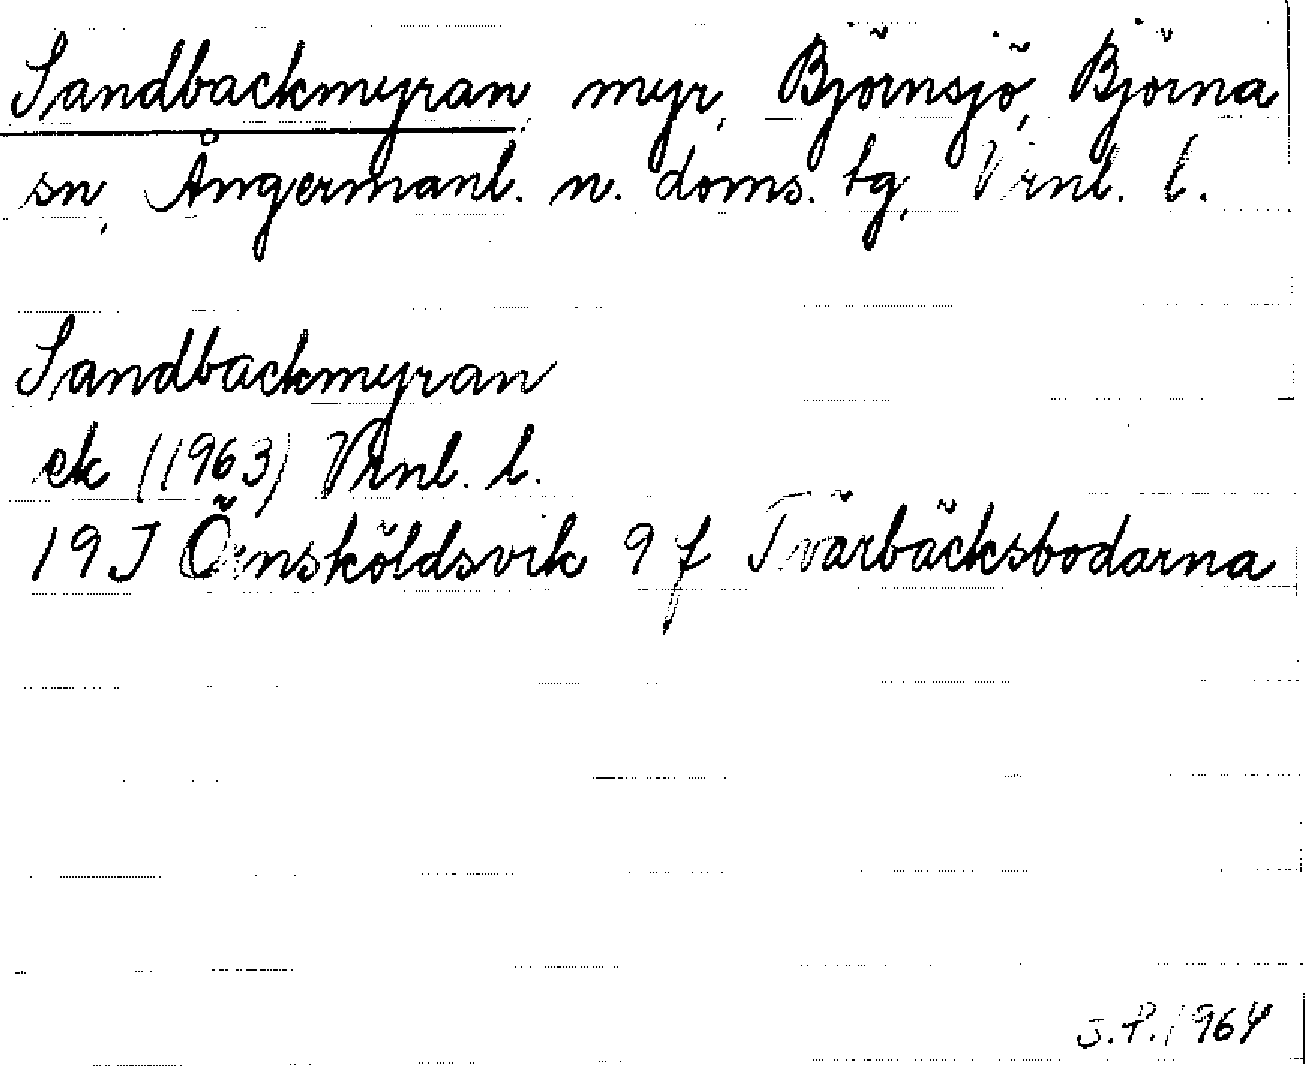 Sandbackmyran, myr, Björnsjö, Björna
sn, Ångermanl. n. doms. tg, Vrnl. l.
Sandbackmyran
ek (1963) Vrnl. l.
19J Örnsköldsvik 9 f Tvärbäcksbodarna
J.P. 1964